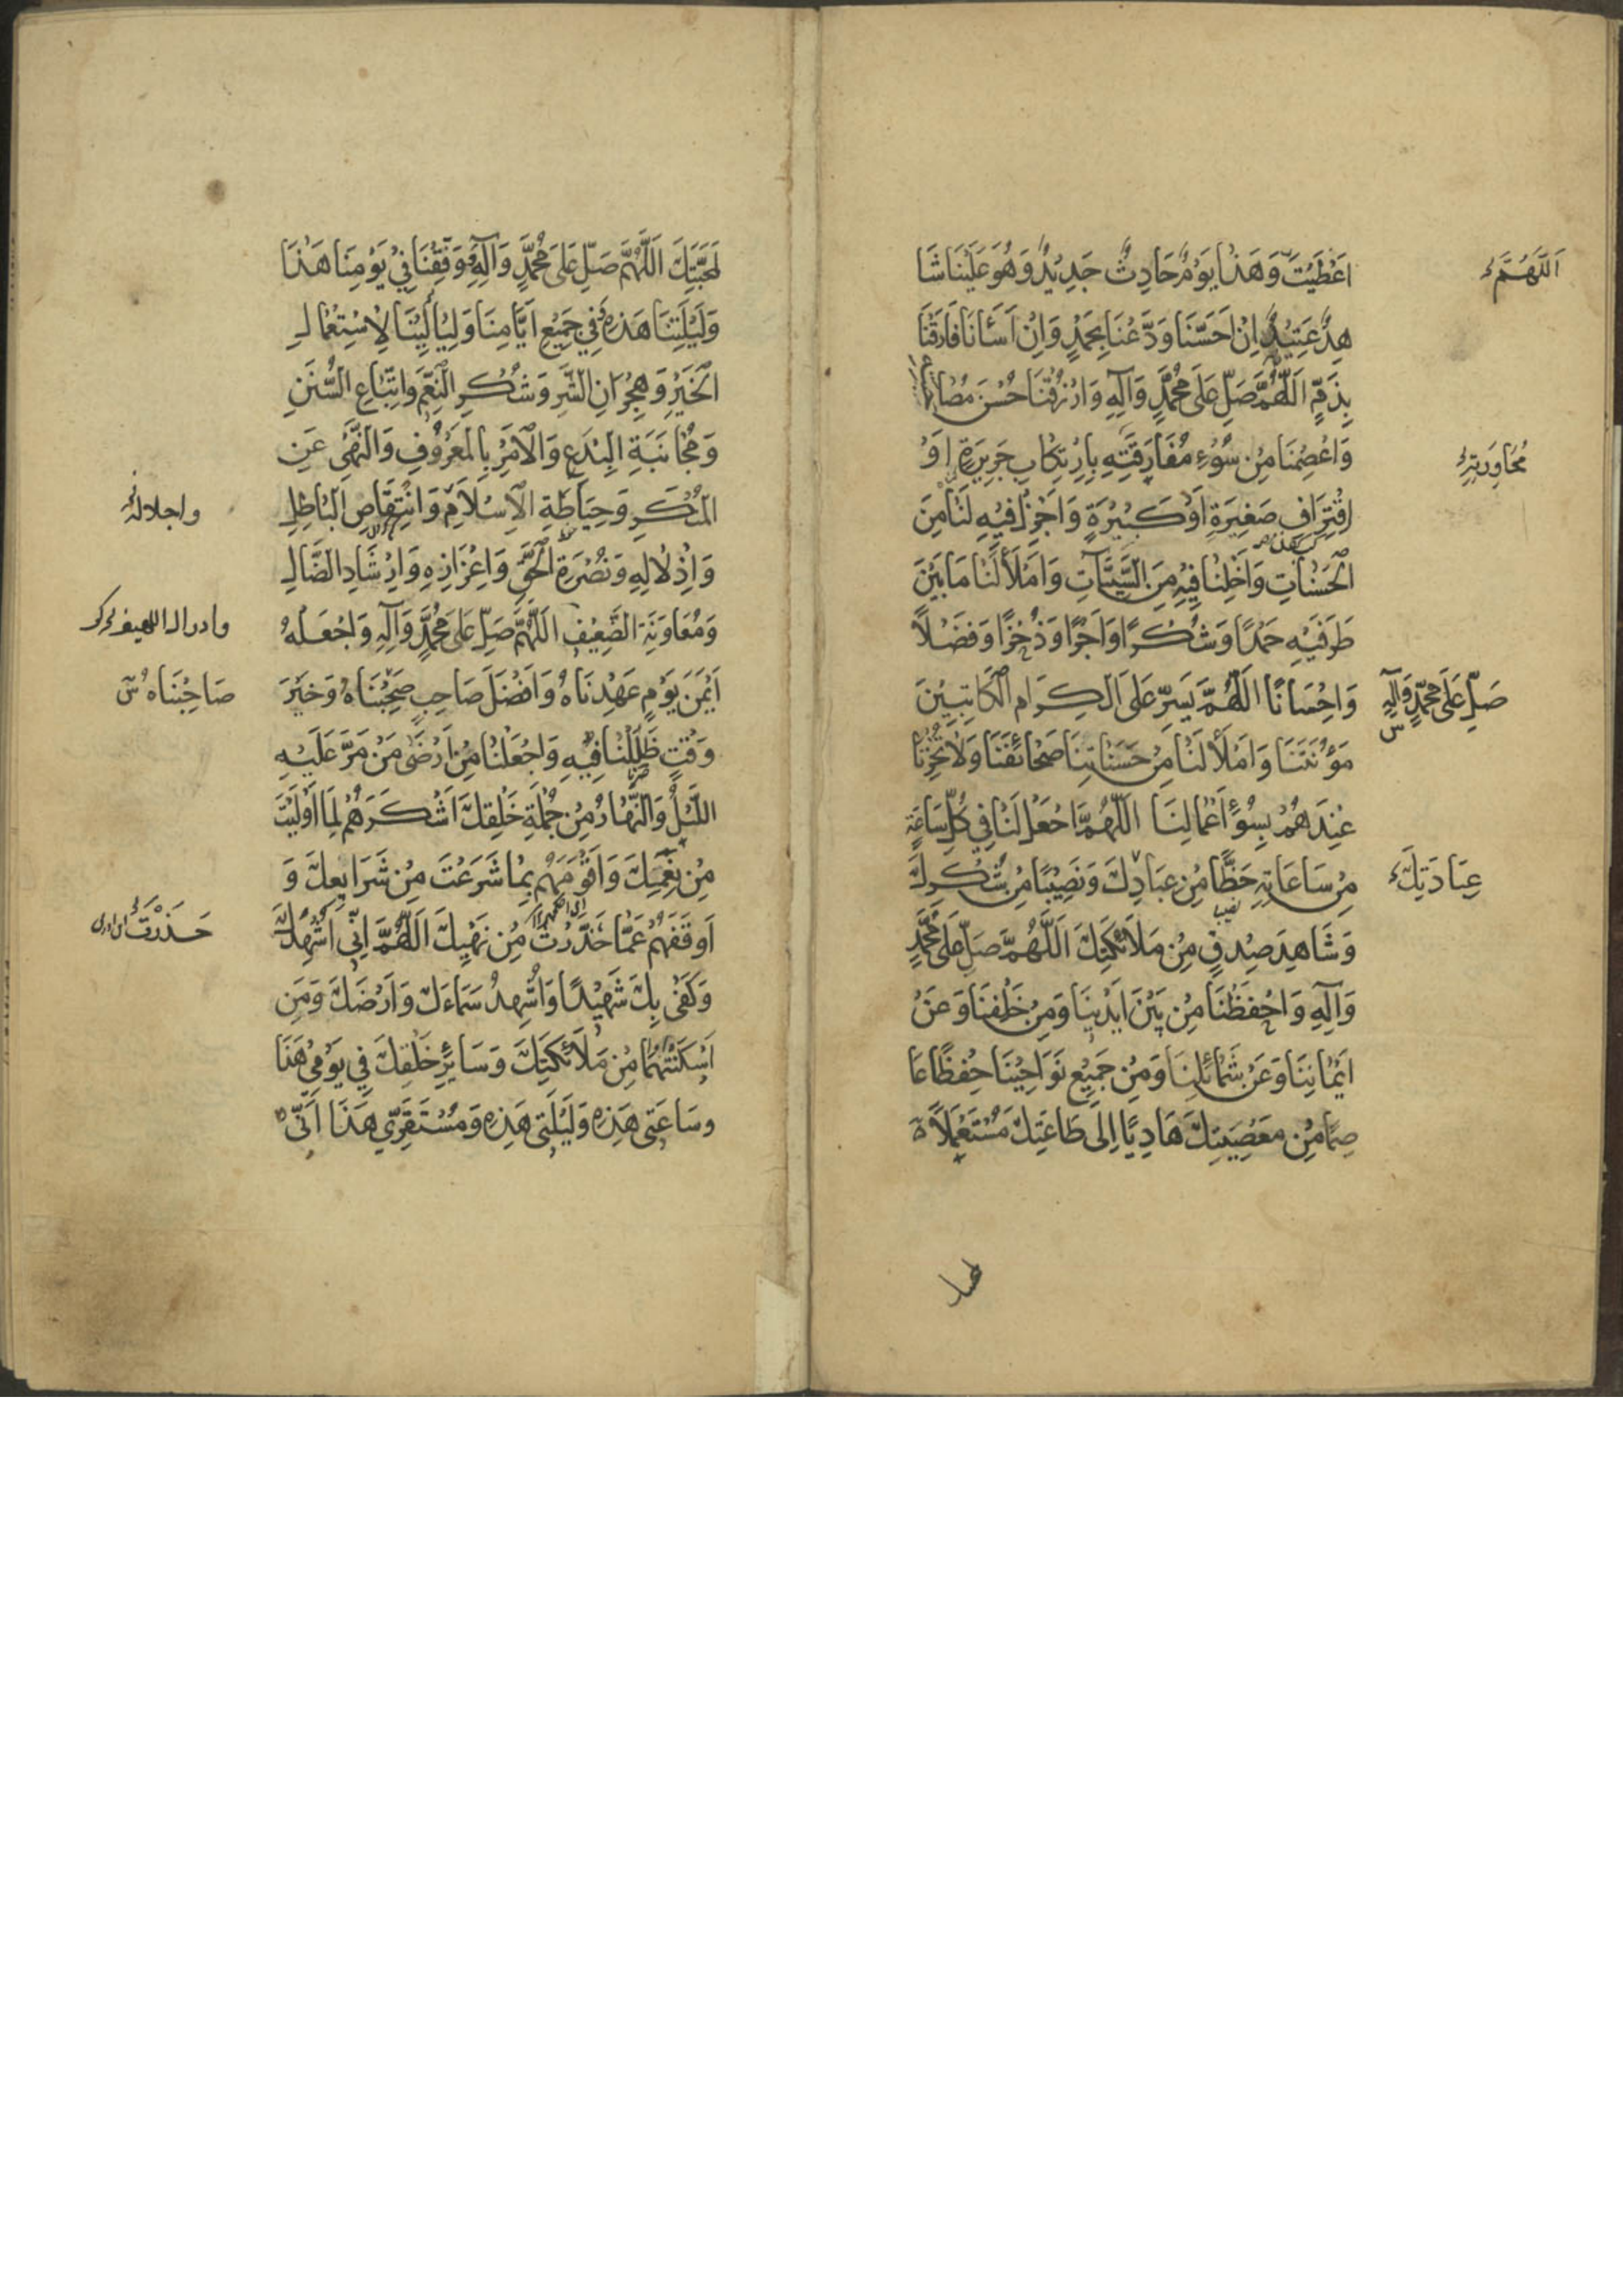 اَعْطَيْتَ وَهَذَا يَوْمٌ حَادِثٌ جَدِيدٌ وَهُوَ عَلَيْنَا شَا
اَللَّهُمَّ
هِدٌ عَتِيدٌ اِنْ اَحْسَنَّا وَدَّعَنَا بِحَمْدٍ وَاِنْ اَسَأْنَا فَارَقَنَا
بِذَمٍّ اَللَّهُمَّ صَلِّ عَلَى مُحَمَّدٍ وَآلِهِ وَارْزُقْنَا حُسْنَ مُصَاحَبَتِهِ
وَاعْصِمْنَا مِنْ سُوءِ مُفَارَقَتِهِ بِارْتِكَابِ جَرِيرَةٍ اَوْ
مُجَاوَرَتِهِ
اقْتِرَافِ صَغِيرَةٍ اَوْ كَبِيرَةٍ وَاَجْزِلْ فِيهِ لَنَا مِنَ
الْحَسَنَاتِ وَاَخْلِنَا فِيهِ مِنَ السَّيِّئَاتِ وَامْلَأْ لَنَا مَا بَيْنَ
طَرَفَيْهِ حَمْدًا وَشُكْرًا وَاَجْرًا وَذُخْرًا وَفَضْلاً
وَاِحْسَانًا اَللَّهُمَّ يَسِّرْ عَلَى الْكِرَامِ الْكَاتِبِينَ
صَلِّ عَلَى مُحَمَّدٍ وَآلِهِ س
مَؤُنَتَنَا وَامْلَأْ لَنَا مِنْ حَسَنَاتِنَا صَحَائِفَنَا وَلَا تُخْزِنَا
عِنْدَهُمْ بِسُوءِ اَعْمَالِنَا اَللَّهُمَّ اجْعَلْ لَنَا فِي كُلِّ سَاعَةٍ
مِنْ سَاعَاتِهِ حَظًّا مِنْ عِبَادِكَ وَنَصِيبًا مِنْ شُكْرِكَ
عِبَادَتِكَ
وَشَاهِدَ صِدْقٍ مِنْ مَلَائِكَتِكَ اَللَّهُمَّ صَلِّ عَلَى مُحَمَّدٍ
وَآلِهِ وَاحْفَظْنَا مِنْ بَيْنِ اَيْدِينَا وَمِنْ خَلْفِنَا وَعَنْ
اَيْمَانِنَا وَعَنْ شَمَائِلِنَا وَمِنْ جَمِيعِ نَوَاحِينَا حِفْظًا عَا
صِمًا مِنْ مَعْصِيَتِكَ هَادِيًا اِلَى طَاعَتِكَ مُسْتَعْمِلاً
لِمَحَبَّتِكَ اَللَّهُمَّ صَلِّ عَلَى مُحَمَّدٍ وَآلِهِ وَوَفِّقْنَا فِي يَوْمِنَا هَذَا
وَلَيْلَتِنَا هَذِهِ وَفِي جَمِيعِ اَيَّامِنَا وَلَيَالِينَا لِاسْتِعْمَالِ
الْخَيْرِ وَهِجْرَانِ الشَّرِّ وَشُكْرِ النِّعَمِ وَاتِّبَاعِ السُّنَنِ
وَمُجَانَبَةِ الْبِدَعِ وَالْاَمْرِ بِالْمَعْرُوفِ وَالنَّهْيِ عَنِ
الْمُنْكَرِ وَحِيَاطَةِ الْاِسْلَامِ وَانْتِقَاصِ الْبَاطِلِ
واجلاله
وَاِذْلَالِهِ وَنُصْرَةِ الْحَقِّ وَاِعْزَازِهِ وَاِرْشَادِ الضَّالِّ
وَمُعَاوَنَةِ الضَّعِيفِ اَللَّهُمَّ صَلِّ عَلَى مُحَمَّدٍ وَآلِهِ وَاجْعَلْهُ
وادراك اللهيف
اَيْمَنَ يَوْمٍ عَهِدْنَاهُ وَاَفْضَلَ صَاحِبٍ صَحِبْنَاهُ وَخَيْرَ
صَاحَبْنَاهُ س
وَقْتٍ ظَلِلْنَا فِيهِ وَاجْعَلْنَا مِنْ اَرْضَى مَنْ مَرَّ عَلَيْهِ
اللَّيْلُ وَالنَّهَارُ مِنْ جُمْلَةِ خَلْقِكَ اَشْكَرَهُمْ لِمَا اَوْلَيْتَ
مِنْ نِعَمِكَ وَاَقْوَمَهُمْ بِمَا شَرَعْتَ مِنْ شَرَايِعِكَ وَ
اَوْقَفَهُمْ عَمَّا حَذَّرْتَ مِنْ نَهْيِكَ اَللَّهُمَّ اِنِّي اُشْهِدُكَ
حَذَّرْتَ
وَكَفَى بِكَ شَهِيدًا وَاُشْهِدُ سَمَاءَكَ وَاَرْضَكَ وَمَنْ
اَسْكَنْتَهُمَا مِنْ مَلَائِكَتِكَ وَسَايِرِ خَلْقِكَ فِي يَوْمِي هَذَا
وَسَاعَتِي هَذِهِ وَلَيْلَتِي هَذِهِ وَمُسْتَقَرِّي هَذَا اَنِّي